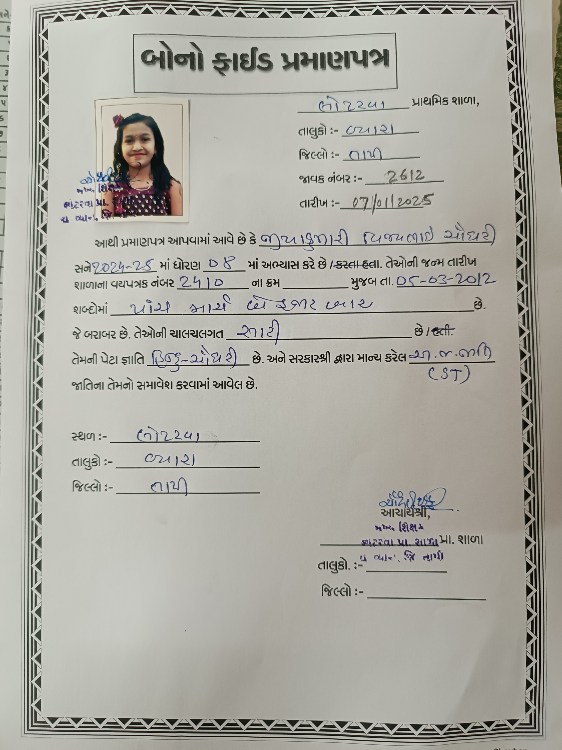 બોનો ફાઈડ પ્રમાણપત્ર
બોરખડી પ્રાથમિક શાળા,
તાલુકો :- વ્યારા
જિલ્લો :- તાપી
જાવક નંબર :- 2612
તારીખ :- 07/01/2025
આથી પ્રમાણપત્ર આપવામાં આવે છે કે ચૌધરી
સને 2024-25 માં ધોરણ 08 માં અભ્યાસ કરે છે / કરતા હતા. તેઓની જન્મ તારીખ
શાળાના વયપત્રક નંબર 2410 ના ક્રમ મુજબ તા. 05-03-2012
શબ્દોમાં પાંચ માર્ચ બે હજાર બાર છે.
જે બરાબર છે. તેઓની ચાલચલગત સારી છે / હતી.
તેમની પેટા જ્ઞાતિ હિન્દુ-ચૌધરી છે. અને સરકારશ્રી દ્વારા માન્ય કરેલ અ.જ.જાતિ
(ST)
જાતિના તેમનો સમાવેશ કરવામાં આવેલ છે.
સ્થળ :-
તાલુકો :- વ્યારા
જિલ્લો :- તાપી
આચાર્યશ્રી,
મુખ્ય શિક્ષક
પ્રા. શાળા
તાલુકો. :-
જિલ્લો :-